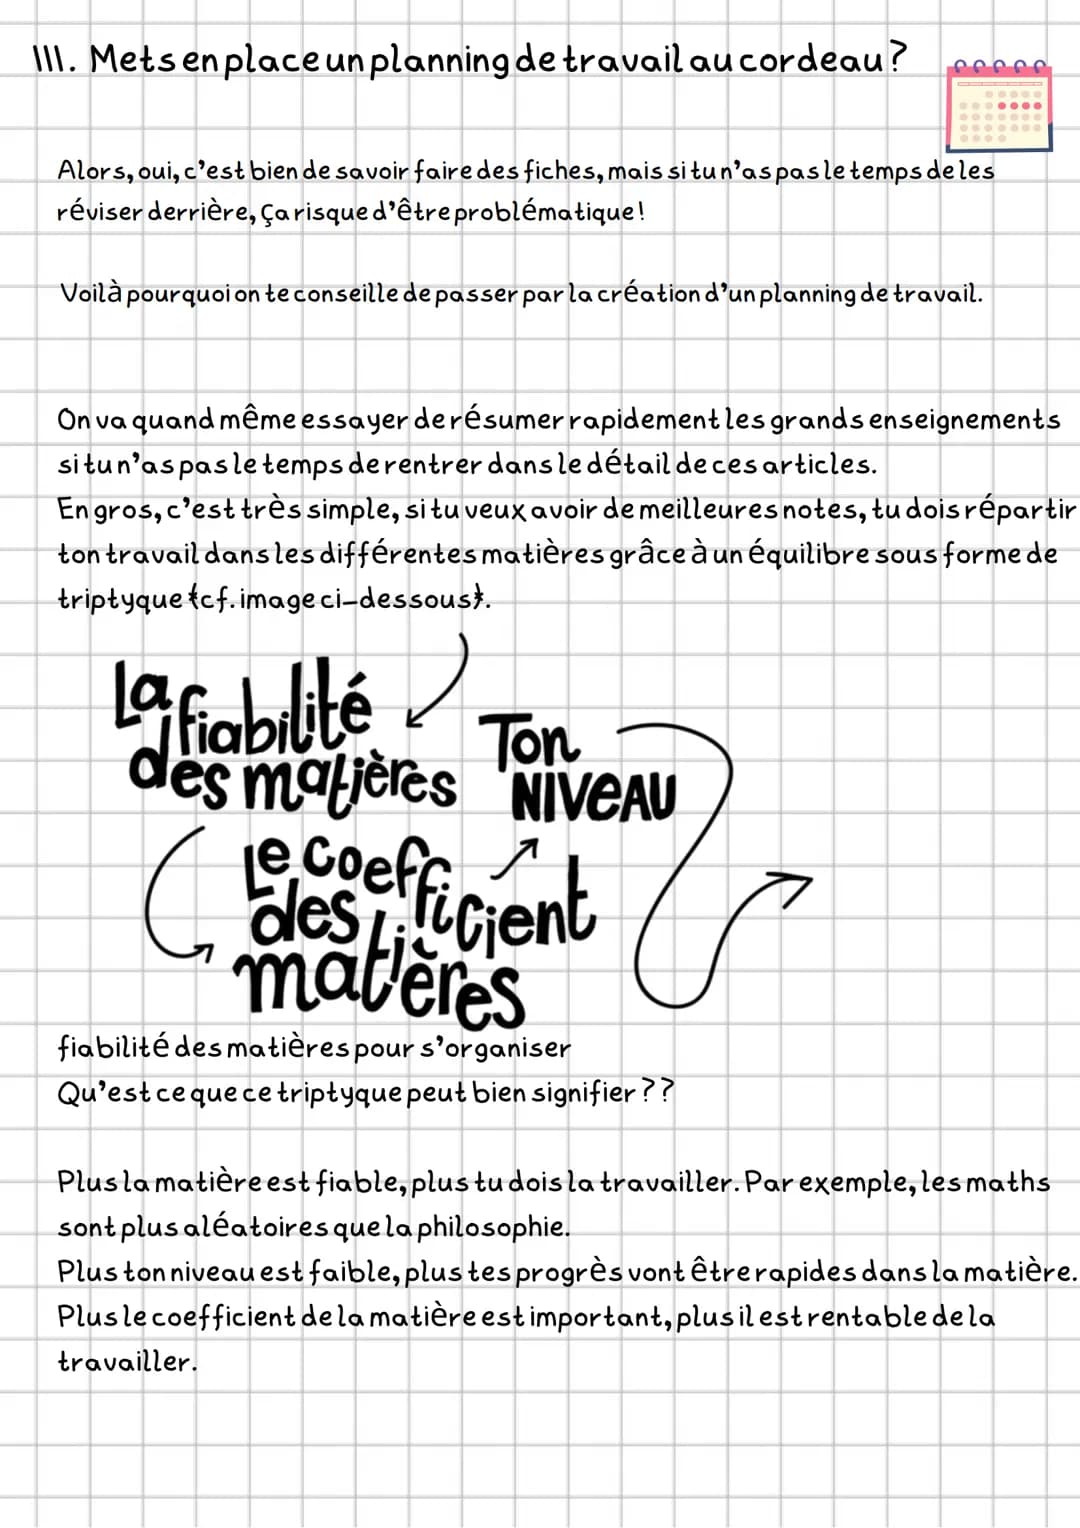 III. Mets en place un planning de travail au cordeau?
Alors, oui, c'est bien de savoir faire des fiches, mais si tu n'as pas le temps de les
réviser derrière, Ça risque d'être problématique!
Voilà pourquoi on te conseille de passer par la création d'un planning de travail.
On va quand même essayer de résumer rapidement les grands enseignements
si tu n'as pas le temps de rentrer dans le détail de ces articles.
En gros, c'est très simple, si tu veux avoir de meilleures notes, tu dois répartir
ton travail dans les différentes matières grâce à un équilibre sous forme de
triptyque {cf. image ci-dessous}.
La fiabilité
des matières
Ton
NIVEAU
Le coefficient
des
matières
fiabilité des matières pour s'organiser
Qu'est ce que ce triptyque peut bien signifier??
Plus la matière est fiable, plus tu dois la travailler. Par exemple, les maths
sont plus aléatoires que la philosophie.
Plus ton niveau est faible, plus tes progrès vont être rapides dans la matière.
Plus le coefficient de la matière est important, plus il est rentable de la
travailler.